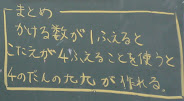 まとめ
かける数が1ふえると
こたえが4ふえることを使うと
4のだんの九九が作れる。